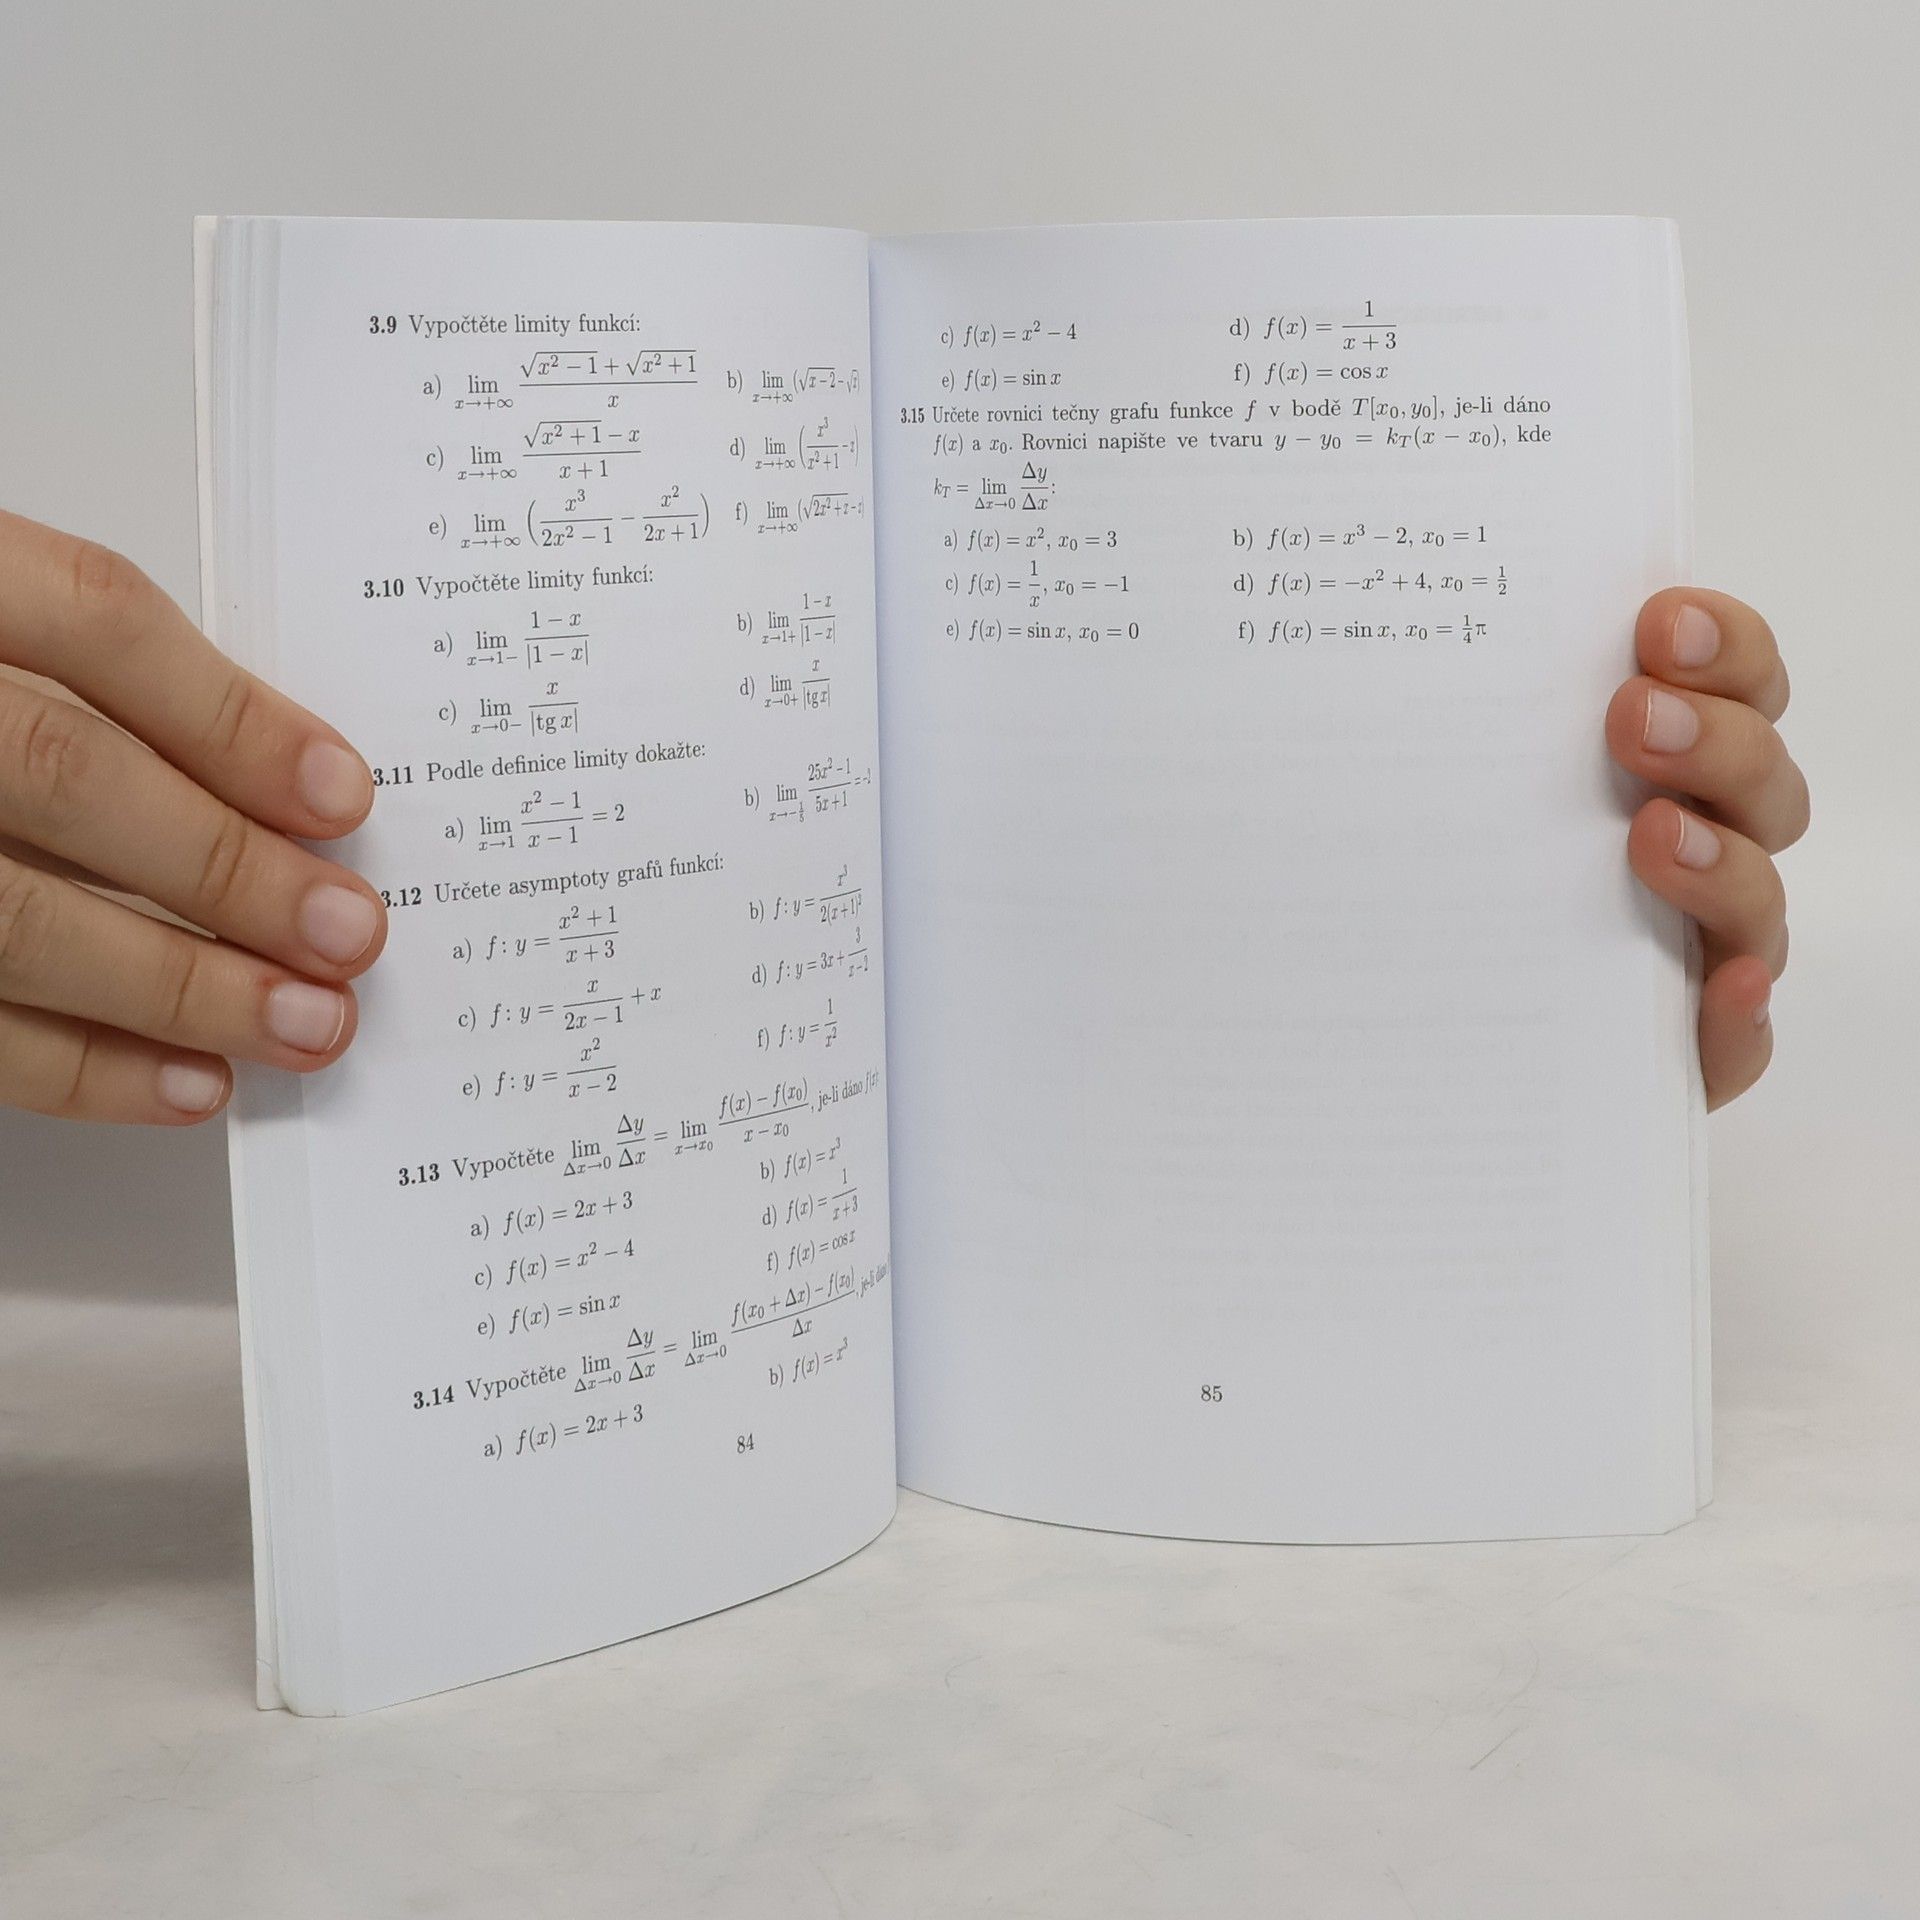 3.9 Vypočtěte limity funkcí:
a) lim x→+∞ (√(x² − 1) + √(x² + 1)) / x b) lim x→+∞ (√(x−2) − √x)
c) lim x→+∞ (√(x² + 1) − x) / (x + 1) d) lim x→+∞ (x³/(x²+1) − x)
e) lim x→+∞ (x³/(2x² − 1) − x²/(2x + 1)) f) lim x→+∞ (√(2x²+x) −
3.10 Vypočtěte limity funkcí:
a) lim x→1− (1 − x)/|1 − x| b) lim x→1+ (1−x)/|1−x|
c) lim x→0− x/|tg x| d) lim x→0+ x/|tg x|
3.11 Podle definice limity dokažte:
a) lim x→1 (x² − 1)/(x − 1) = 2 b) lim x→−1/5 (25x²−1)/(5x+1) = −2
3.12 Určete asymptoty grafů funkcí:
a) f: y = (x² + 1)/(x + 3) b) f: y = x³/2(x+1)²
c) f: y = x/(2x − 1) + x d) f: y = 3x + 3/(x−2)
e) f: y = x²/(x − 2) f) f: y = 1/x²
3.13 Vypočtěte lim Δx→0 Δy/Δx = lim x→x₀ (f(x) − f(x₀))/(x − x₀), je-li dáno f(x):
a) f(x) = 2x + 3 b) f(x) = x³
c) f(x) = x² − 4 d) f(x) = 1/(x+3)
e) f(x) = sin x f) f(x) = cos x
3.14 Vypočtěte lim Δx→0 Δy/Δx = lim Δx→0 (f(x₀ + Δx) − f(x₀))/Δx, je-li dáno
a) f(x) = 2x + 3 b) f(x) = x³
84
c) f(x) = x² − 4 d) f(x) = 1/(x + 3)
e) f(x) = sin x f) f(x) = cos x
3.15 Určete rovnici tečny grafu funkce f v bodě T[x₀, y₀], je-li dáno
f(x) a x₀. Rovnici napište ve tvaru y − y₀ = k_T(x − x₀), kde
k_T = lim Δx→0 Δy/Δx:
a) f(x) = x², x₀ = 3 b) f(x) = x³ − 2, x₀ = 1
c) f(x) = 1/x, x₀ = −1 d) f(x) = −x² + 4, x₀ = 1/2
e) f(x) = sin x, x₀ = 0 f) f(x) = sin x, x₀ = 1/4 π
85